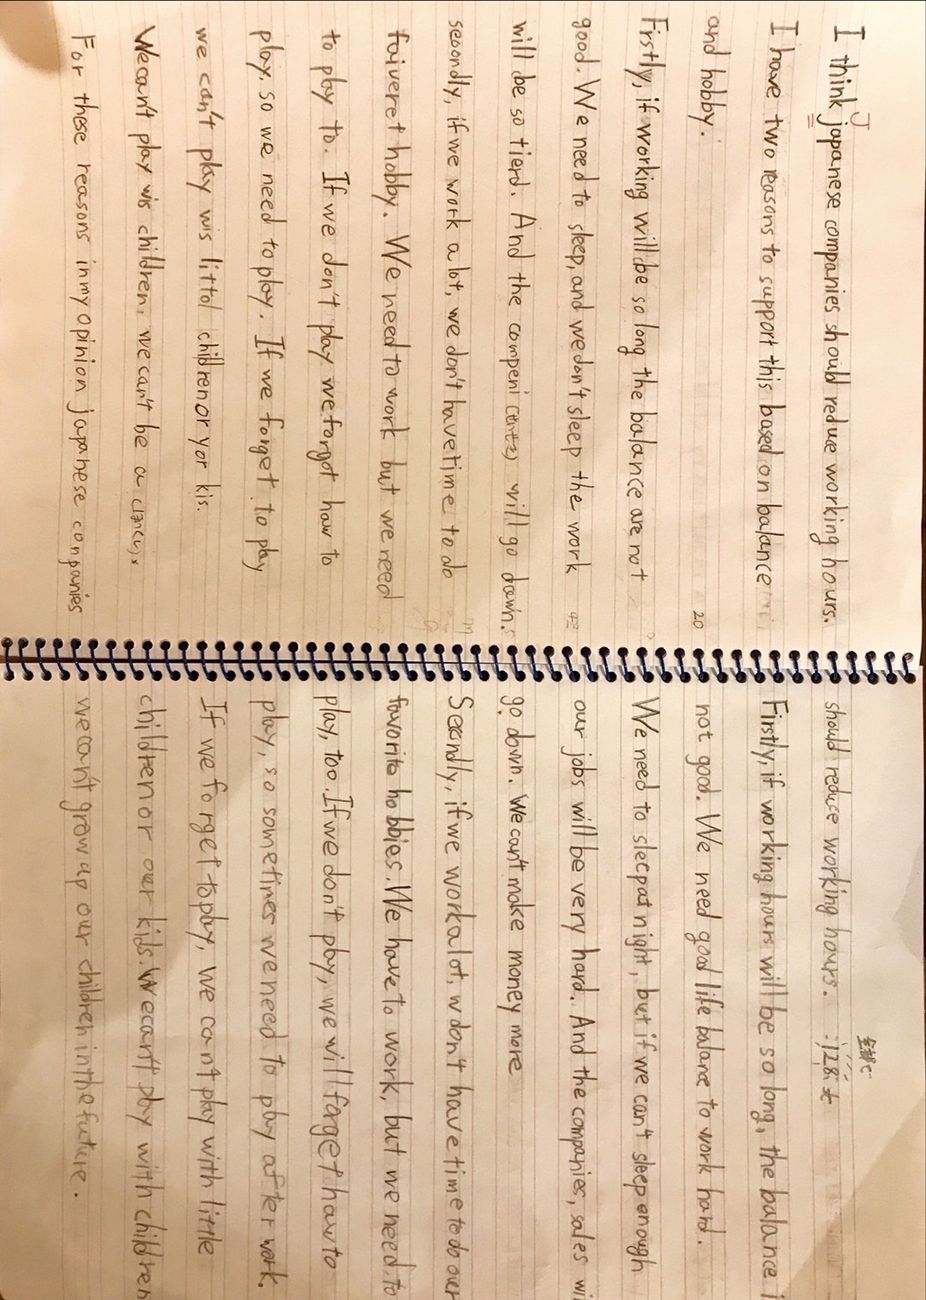 I think japanese companies should reduce working hours.
J
I have two reasons to support this based on balance
and hobby.
20
Firstly, if working will be so long the balance are not
good. We need to sleep, and we don't sleep the work
will be so tierd. And the compeni will go dawn.
secondly, if we work a lot, we don't have time to do
faiveret hobby. We need to work but we need
to play to. If we don't play we forgot how to
play. so we need to play. If we forget to play
we can't play wis littol children or yor kis.
We can't play wis children, we can't be a
For these reasons in my opinion japanese companies
should reduce working hours.
全部で
128
Firstly, if working hours will be so long, the balance i
not good. We need good life balanc to work hard.
We need to sleep at night, but if we can't sleep enough
our jobs will be very hard. And the companies, sales wi
go down. We can't make money more
Secndly, if we work a lot, w don't have time to do our
favorite hobbies. We have to work, but we need to
play, too. If we don't play, we will forget how to
play, so sometimes we need to play after work.
If we forget to play, we can't play with little
children or our kids. We can't play with children
we can't grow up our children in the future.